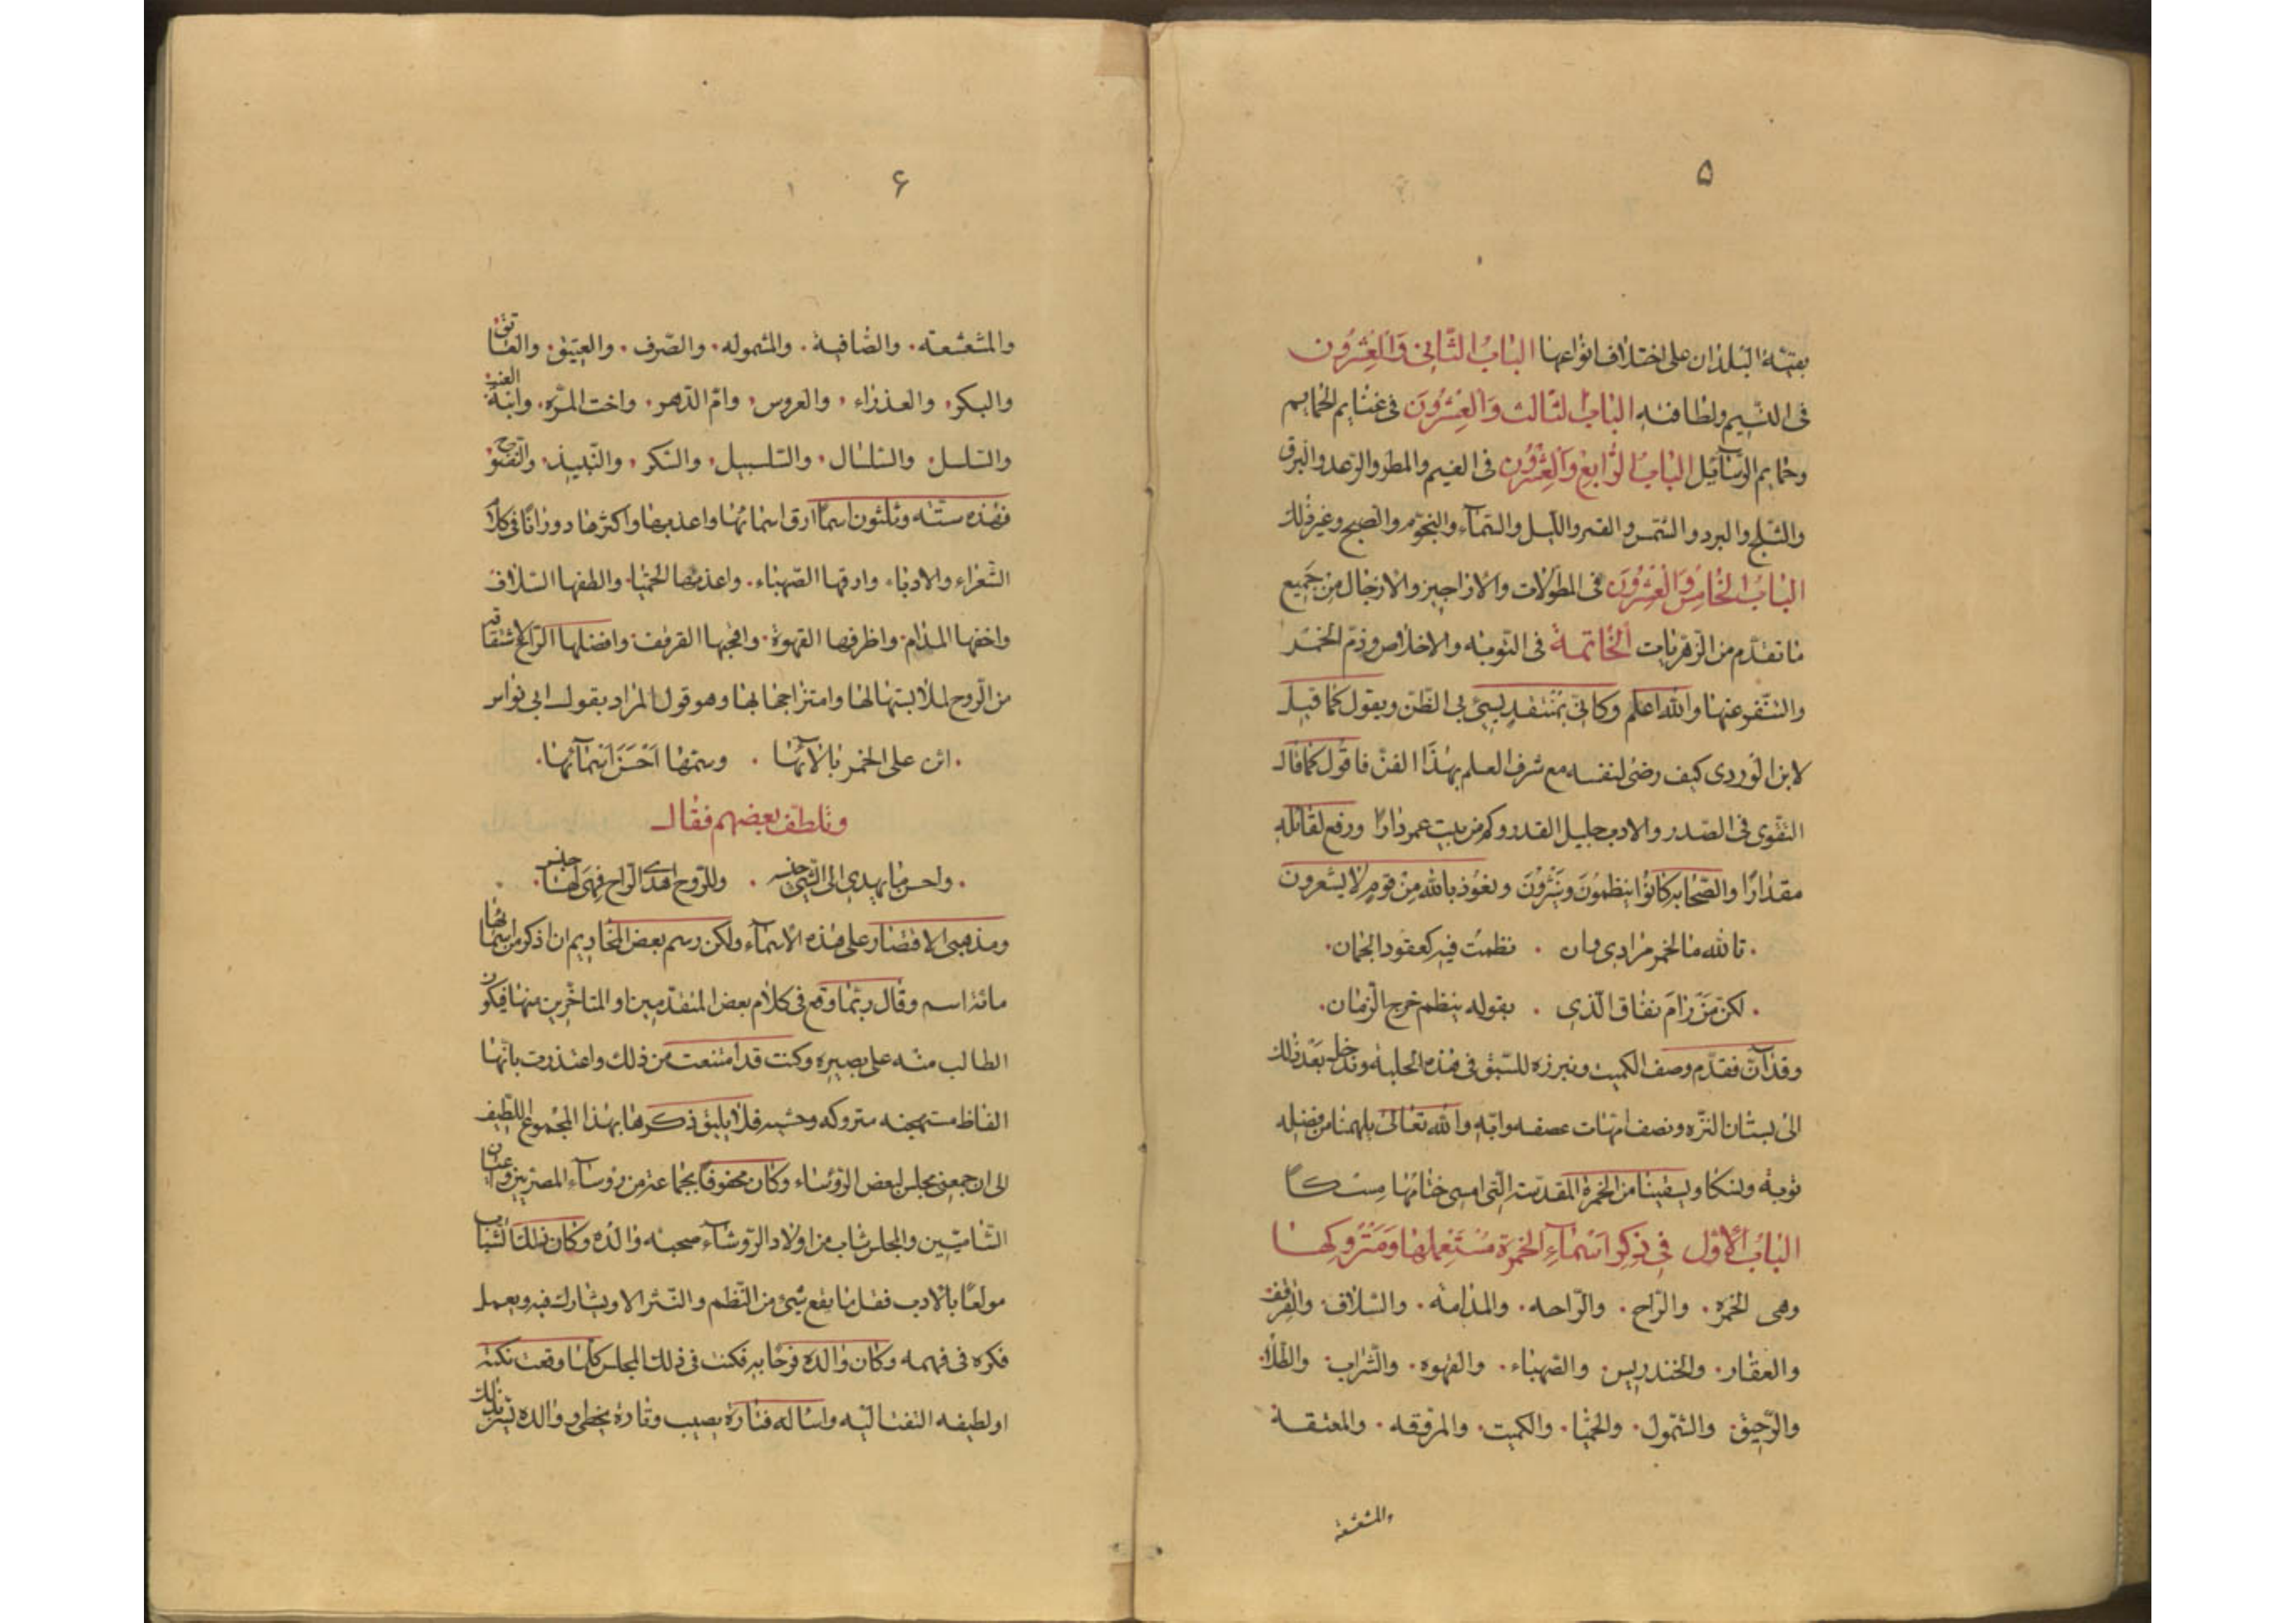 ۵
بقيّة البلدان على اختلاف انواعها الباب الثاني والعشرون
فى النسيم ولطافته الباب الثالث والعشرون فى غنايم الحمايم
وحمايم الرسآئل الباب الرابع والعشرون فى الغيم والمطر والرعد والبرق
والثلج والبرد والشمس والقمر والليل والسّمآء والنجوم والصبح وغير ذلك
الباب الخامس والعشرون فى المطوّلات والاراجيز والازجال من جميع
ما تقدّم من الزهريات الخاتمة فى التوبه والاخلاص وذمّ الخمر
والتنفر عنها والله اعلم وكانّى بمنتقد يسئ بى الظّن ويقول كما قيل
لابن الوردى كيف رضى لنفسه مع شرف العلم بهذا الفنّ فاقول كما قال
التقوى فى الصّدر والادب جليل القدر وكم من بيت عمر دارًا ورفع لقائله
مقدارًا والصّحابه كانوا ينظمون وينثرون ونعوذ بالله من قوم لا يشعرون
تالله ما الخمر مرادى وان . نظمت فيه كعقود الجمان
لكن من رام نفاق الّذى . بقوله ينظم خرج الزمان
وقد آن فقدّم وصف الكميت ونبرزه للسّبق فى هذه الحلبة وندخل بعد ذلك
الى بستان النزّه ونصف امّهات عصفه وابّه والله تعالى يلهمنا من فضله
توبة ونسكا ويسقينا من الخمرة المقدّسة الّتى امسى ختامها مسكًا
الباب الأوّل فى ذكر اسمآء الخمرة مستعملها ومتروكها
وهى الخمره . والرّاح . والرّاحه . والمدامة . والسّلاف . والقرقف
والعقار . والخندريس . والصّهباء . والقهوه . والشّراب . والطّلا
والرّحيق . والشّمول . والحميّا . والكميت . والمروّقه . والمعتقة
والمشعشعة
۶
والمشعشعة . والصّافية . والمشموله . والصّرف . والعتيق . والعاتق
والبكر . والعذراء . والعروس . وامّ الدّهر . واخت المرّه . وابنة العنب
والسلسل . والسّلسال . والسّلسبيل . والسّكر . والنّبيذ . والفتوح
فهذه ستّة وثلثون اسمًا ارق اسمائها واعذبها واكثرها دورانًا فى كلام
الشّعراء والادباء وادقّها الصّهباء . واعذبها الحميّا . والطفها السّلاف
واخفّها المدام . واظرفها القهوة . وافجّها القرقف . وافضلها الرّاح لاشتقاقه
من الرّوح لملابستها لها وامتزاجها بها وهو قول المراد بقول ابى نواس
. اثن على الخمر بالآئها . وسمّها احسن اسمآئها .
وتلطّف بعضهم فقال
. واحسن ما يهدى الى الشّئ جنسه . وللرّوح اهدى الرّاح فهى لها جنس .
ومذهبى الاقتصار على هذه الاسمآء ولكن رسم بعض المخاديم ان اذكر من اسمائها
مائة اسم وقال ربّما وقع فى كلام بعض المتقدّمين او المتاخّرين منها فيكون
الطالب منه على بصيره وكنت قد امتنعت من ذلك واعتذرت بانّها
الفاظ مستهجنه متروكه وحشيه فلا يليق ذكرها بهذا المجموع اللّطيف
الى ان جمعنى مجلس لبعض الرؤساء وكان محفوفًا بجماعة من رؤسآء المصريين واعيان
الشّاميّين والمجلس شاب من اولاد الرّوسآء صحبة والده وكان ذلك الشّباب
مولعًا بالادب فقل ما يقع شئ من النّظم والنّثر الا ويشارك فيه ويعمل
فكره فى فهمه وكان والده فرحًا به فكنت فى ذلك المجلس كلما وقعت نكتة
او لطيفه التفتّ اليه واساله فتارة يصيب وتارة يخطى ووالده يسرّ بذلك